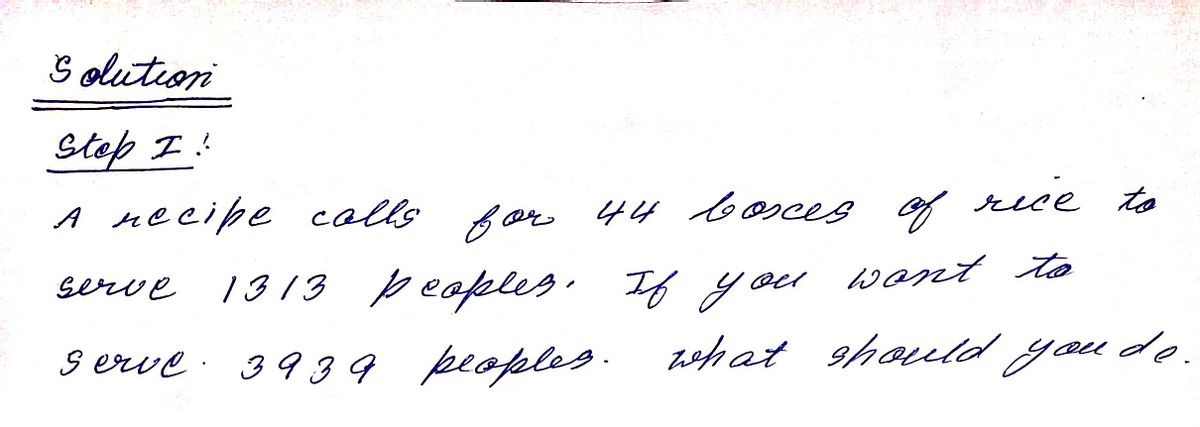 Solution
Step I:
A recipe calls for 44 boxes of rice to
serve 1313 peoples. If you want to
serve. 3939 peoples. what should you do.